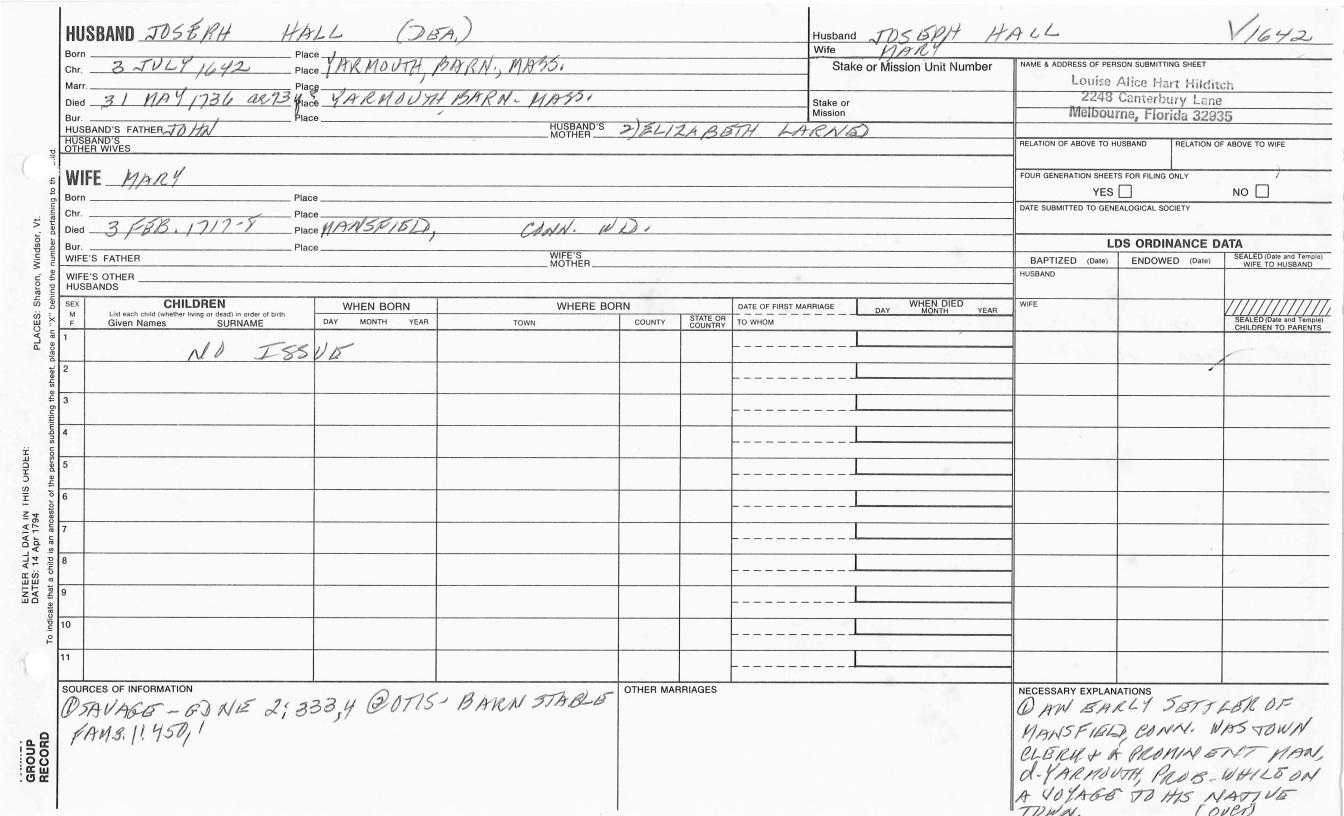 HUSBAND JOSEPH HALL (DEA.)
Born Place
Chr. 3 JULY 1642 Place YARMOUTH, BARN., MASS.
Marr. Place
Died 31 MAY 1736 Place YARMOUTH BARN- MASS.
Bur. Place
HUSBAND'S FATHER JOHN HUSBAND'S MOTHER 2) ELIZABETH LARNED
HUSBAND'S OTHER WIVES
WIFE MARY
Born Place
Chr. Place
Died 3 FEB. 1717-8 Place MANSFIELD, CONN. WD.
Bur. Place
WIFE'S FATHER WIFE'S MOTHER
WIFE'S OTHER HUSBANDS
Husband JOSEPH HALL √1642
Wife MARY
Stake or Mission Unit Number
Stake or
Mission
NAME & ADDRESS OF PERSON SUBMITTING SHEET
Louise Alice Hart Hilditch
2248 Canterbury Lane
Melbourne, Florida 32935
RELATION OF ABOVE TO HUSBAND RELATION OF ABOVE TO WIFE
FOUR GENERATION SHEETS FOR FILING ONLY
YES NO
DATE SUBMITTED TO GENEALOGICAL SOCIETY
LDS ORDINANCE DATA
BAPTIZED (Date) ENDOWED (Date) SEALED (Date and Temple) WIFE TO HUSBAND
HUSBAND
WIFE
SEALED (Date and Temple)
CHILDREN TO PARENTS
SEX M F
CHILDREN
List each child (whether living or dead) in order of birth
Given Names SURNAME
WHEN BORN
DAY MONTH YEAR
WHERE BORN
TOWN COUNTY STATE OR COUNTRY
DATE OF FIRST MARRIAGE
TO WHOM
WHEN DIED
DAY MONTH YEAR
1 NO ISSUE
2
3
4
5
6
7
8
9
10
11
SOURCES OF INFORMATION
① SAVAGE - GDNE 2; 333,4 ② OTIS- BARNSTABLE
FAMS.
OTHER MARRIAGES
NECESSARY EXPLANATIONS
① AN EARLY SETTLER OF
MANSFIELD, CONN. WAS TOWN
CLERK & A PROMINENT MAN,
d. YARMOUTH, PROB. WHILE ON
A VOYAGE TO HIS NATIVE
TOWN. (over)
PLACES: Sharon, Windsor, Vt.
ENTER ALL DATA IN THIS ORDER:
DATES: 14 Apr 1794
To indicate that a child is an ancestor of the person submitting the sheet, place an "X" behind the number pertaining to
GROUP
RECORD